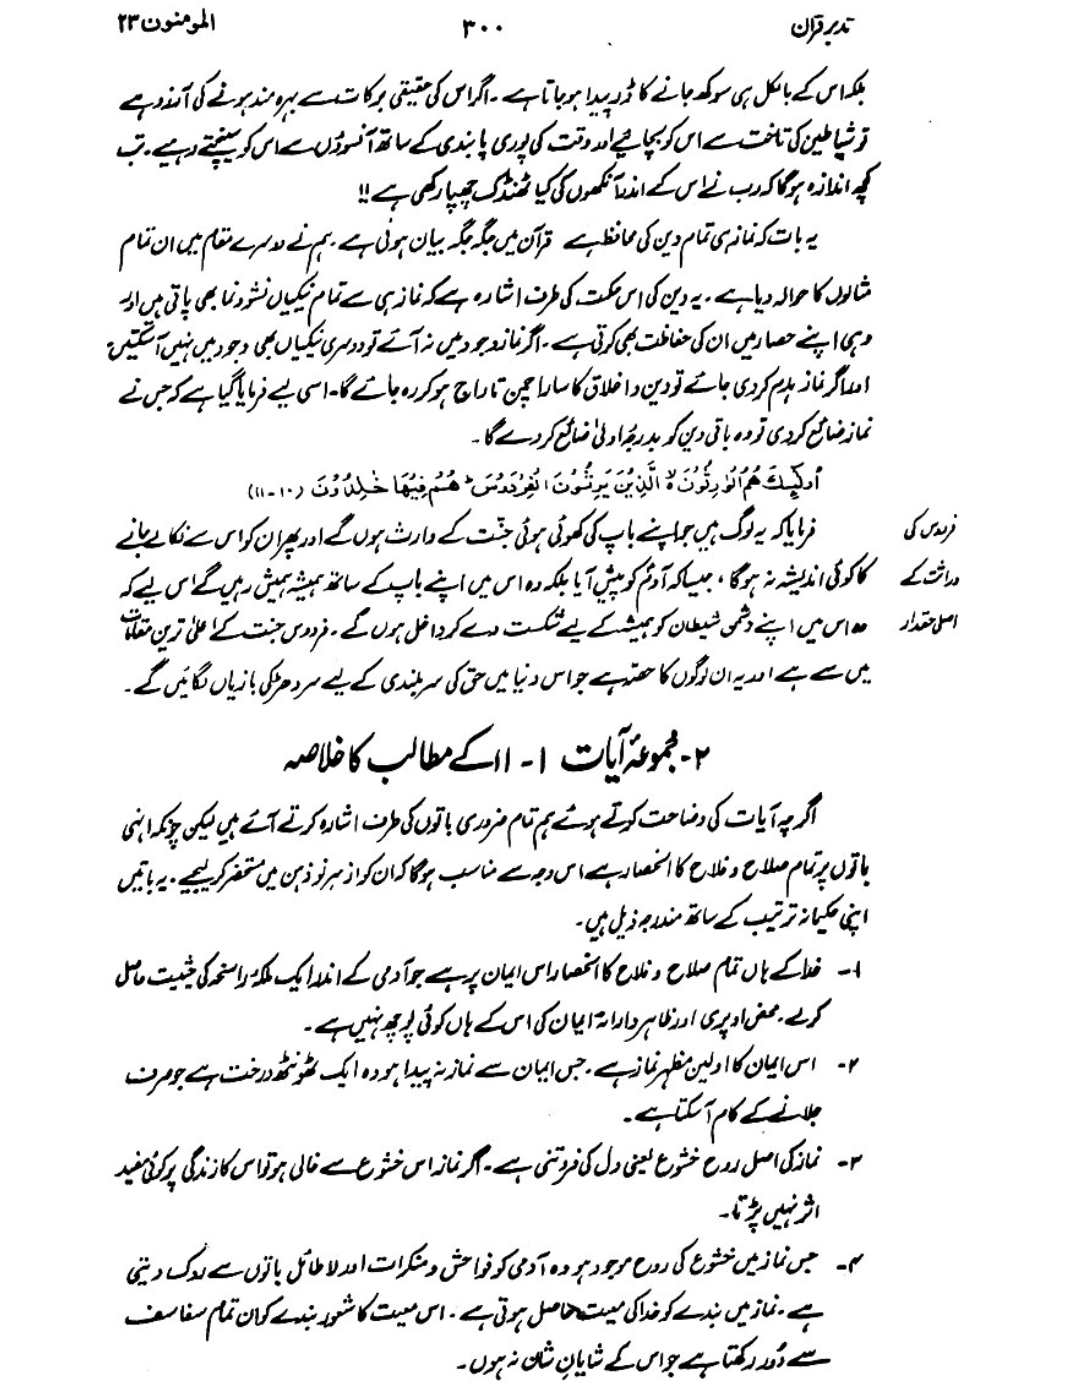 تدبر قرآن ۳۰۰ المومنون ۲۳
بلکہ اس کے بالکل ہی سوکھ جانے کا ڈر پیدا ہو جاتا ہے۔ اگر اس کی حقیقی برکات سے بہرہ مند ہونے کی آرزو ہے
تو شیاطین کی تاخت سے اس کو بچائیے اور وقت کی پوری پابندی کے ساتھ آنسوؤں سے اس کو سینچتے رہیے۔ تب
کچھ اندازہ ہوگا کہ رب نے اس کے اندر آنکھوں کی کیا ٹھنڈک چھپا رکھی ہے!!
یہ بات کہ نماز ہی تمام دین کی محافظ ہے قرآن میں جگہ جگہ بیان ہوئی ہے۔ ہم نے دوسرے مقام میں ان تمام
مثالوں کا حوالہ دیا ہے۔ یہ دین کی اس حکمت کی طرف اشارہ ہے کہ نماز ہی سے تمام نیکیاں نشوونما بھی پاتی ہیں اور
وہی اپنے حصار میں ان کی حفاظت بھی کرتی ہے۔ اگر نماز وجود میں نہ آئے تو دوسری نیکیاں بھی وجود میں نہیں آ سکتیں
اور اگر نماز ہدم کر دی جائے تو دین و اخلاق کا سارا چمن تاراج ہو کر رہ جائے گا۔ اسی لیے فرمایا گیا ہے کہ جس نے
نماز ضائع کر دی تو وہ باقی دین کو بدرجۂ اولیٰ ضائع کر دے گا۔
اُولٰٓئِكَ هُمُ الْوٰرِثُوْنَ ۙ الَّذِيْنَ يَرِثُوْنَ الْفِرْدَوْسَ ؕ هُمْ فِيْهَا خٰلِدُوْنَ (۱۰-۱۱)
فردوس کی
وراثت کے
اصلی حقدار
فرمایا کہ یہ لوگ ہیں جو اپنے باپ کی کھوئی ہوئی جنّت کے وارث ہوں گے اور پھر ان کو اس سے نکالے جانے
کا کوئی اندیشہ نہ ہوگا، جیسا کہ آدمؑ کو پیش آیا بلکہ وہ اس میں اپنے باپ کے ساتھ ہمیشہ ہمیش رہیں گے اس لیے کہ
وہ اس میں اپنے دشمن شیطان کو ہمیشہ کے لیے شکست دے کر داخل ہوں گے۔ فردوس جنت کے اعلیٰ ترین مقامات
میں سے ہے اور یہ ان لوگوں کا حصہ ہے جو اس دنیا میں حق کی سربلندی کے لیے سر دھڑ کی بازیاں لگائیں گے۔
۲- مجموعۂ آیات ۱-۱۱ کے مطالب کا خلاصہ
اگرچہ آیات کی وضاحت کرتے ہوئے ہم تمام ضروری باتوں کی طرف اشارہ کرتے آئے ہیں لیکن چونکہ انہی
باتوں پر تمام صلاح و فلاح کا انحصار ہے اس وجہ سے مناسب ہوگا کہ ان کو از سر نو ذہن میں مستحضر کر لیجیے۔ یہ باتیں
اپنی حکیمانہ ترتیب کے ساتھ مندرجہ ذیل ہیں۔
۱- خدا کے ہاں تمام صلاح و فلاح کا انحصار اس ایمان پر ہے جو آدمی کے اندر ایک ملکۂ راسخہ کی حیثیت حاصل
کر لے۔ محض اوپری اور ظاہر دارانہ ایمان کی اس کے ہاں کوئی پوچھ نہیں ہے۔
۲- اس ایمان کا اولین مظہر نماز ہے۔ جس ایمان سے نماز نہ پیدا ہو وہ ایک ٹھونٹھ درخت ہے جو صرف
جلانے کے کام آ سکتا ہے۔
۳- نماز کی اصل روح خشوع یعنی دل کی فروتنی ہے۔ اگر نماز اس خشوع سے خالی ہو تو اس کا زندگی پر کوئی مفید
اثر نہیں پڑتا۔
۴- جس نماز میں خشوع کی روح موجود ہو وہ آدمی کو فواحش و منکرات اور لاطائل باتوں سے روک دیتی
ہے۔ نماز میں بندے کو خدا کی معیت حاصل ہوتی ہے۔ اس معیت کا شعور بندے کو ان تمام سفاسف
سے دُور رکھتا ہے جو اس کے شایانِ شان نہ ہوں۔